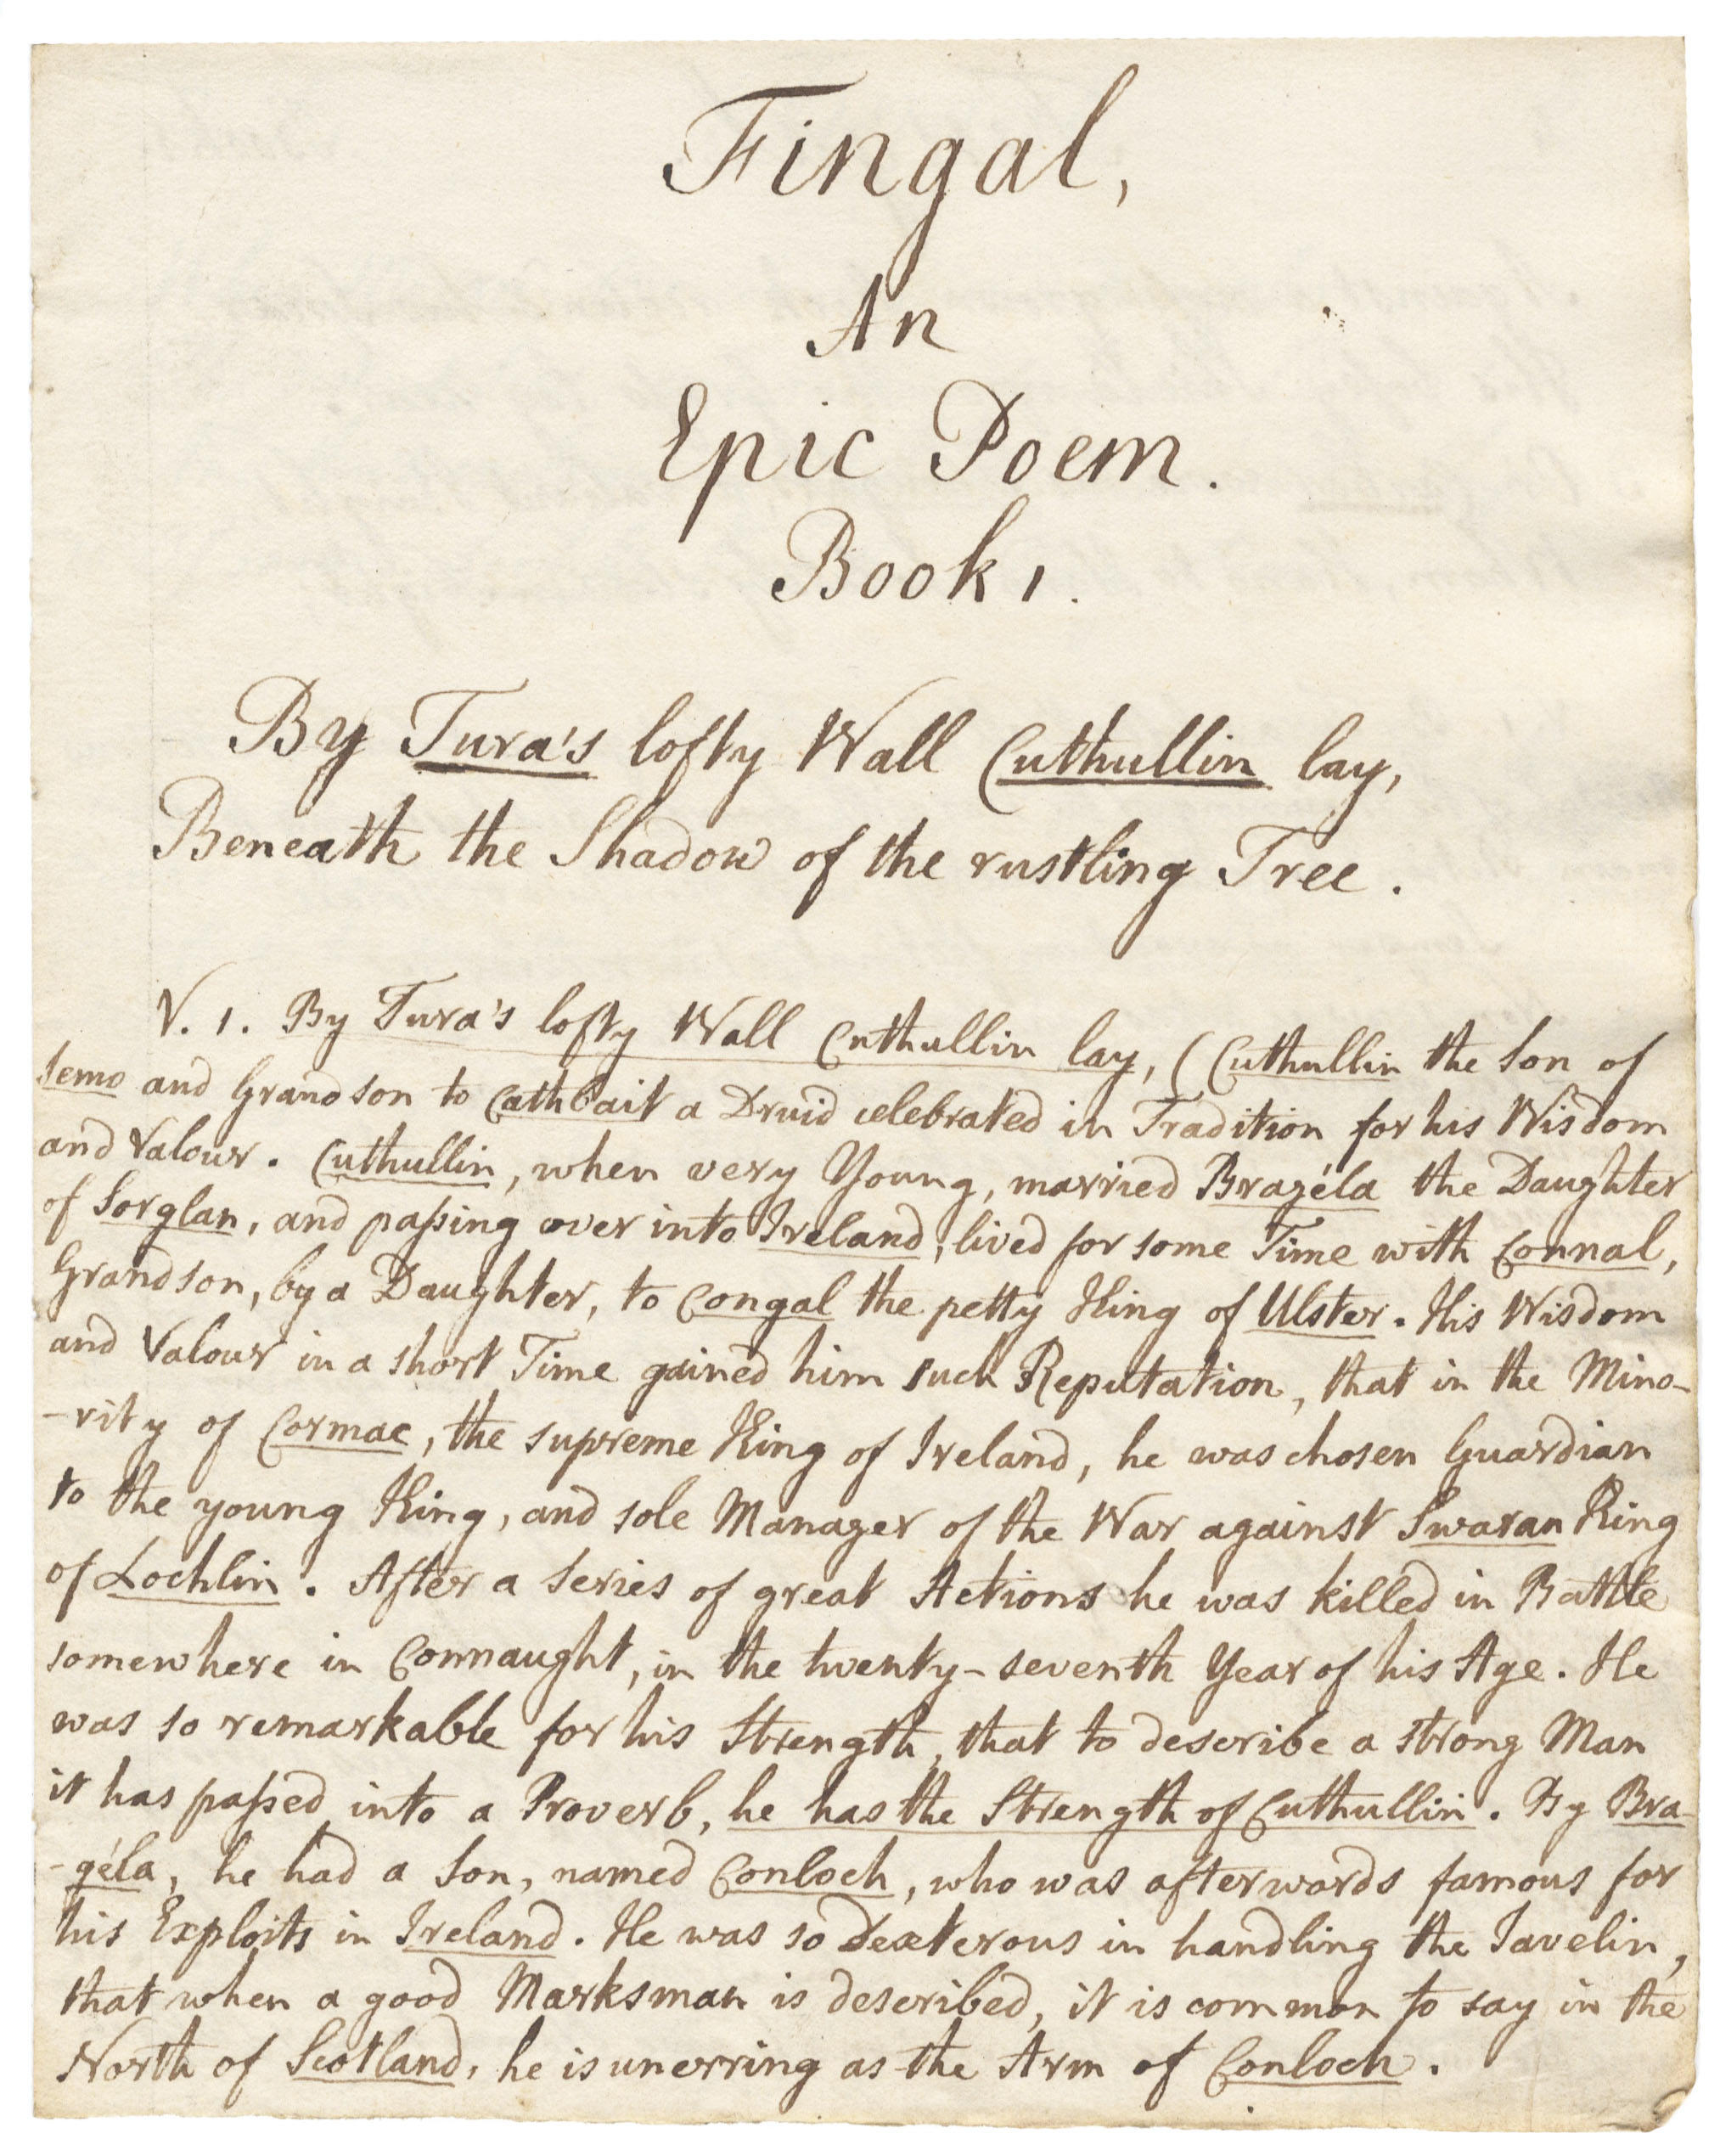 Fingal,
An
Epic Poem.
Book 1.
By Tura's lofty Wall Cuthullin lay,
Beneath the Shadow of the rustling Tree.
V. 1. By Tura's lofty Wall Cuthullin lay, (Cuthullin the Son of
Semo and Grandson to Cathbait a Druid celebrated in Tradition for his Wisdom
and Valour. Cuthullin, when very Young, married Bragéla the Daughter
of Sorglan, and paſsing over into Ireland, lived for some Time with Connal,
Grandson, by a Daughter, to Congal the petty King of Ulster. His Wisdom
and Valour in a short Time gained him such Reputation, that in the Mino-
-rity of Cormac, the supreme King of Ireland, he was chosen Guardian
to the young King, and sole Manager of the War against Swaran King
of Lochlin. After a Series of great Actions he was killed in Battle
somewhere in Connaught, in the twenty-seventh Year of his Age. He
was so remarkable for his Strength, that to describe a strong Man
it has paſsed into a Proverb, he has the Strength of Cuthullin. By Bra-
-géla, he had a Son, named Conloch, who was afterwards famous for
his Exploits in Ireland. He was so Dexterous in handling the Javelin,
that when a good Marksman is described, it is common to say in the
North of Scotland, he is unerring as the Arm of Conloch.